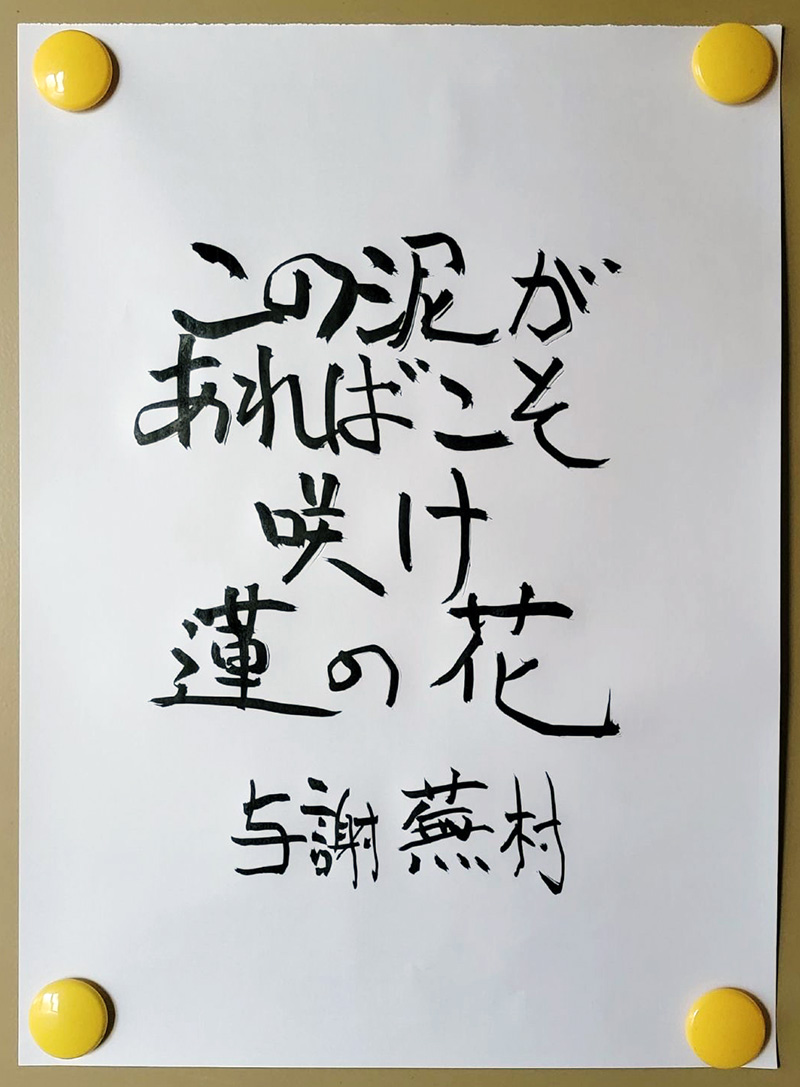 この泥が
あればこそ
咲け
蓮の花
与謝蕪村